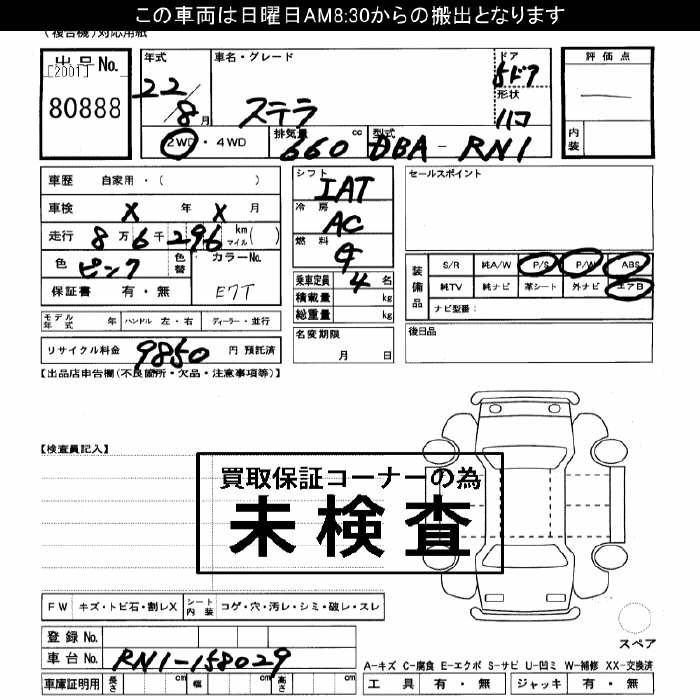 この車両は日曜日AM8:30からの搬出となります
(複合機)対応用紙
出品No.
[2001]
80888
年式
22/8月
車名・グレード
ステラ
ドア
5ドア
形状
ハコ
評価点
内装
2WD・4WD
排気量
660
cc
型式
DBA-RN1
車歴 自家用・( )
車検 X 年 X 月
走行 8万6千296 km マイル( )
色 ピンク 色替 カラーNo. E7T
保証書 有・無
シフト
IAT
冷房
AC
燃料
G
乗車定員 4 名
積載量 kg
総重量 kg
セールスポイント
装備品
S/R 純A/W P/S P/W ABS
純TV 純ナビ 革シート 外ナビ エアB
ナビ型番:
モデル年式 年 ハンドル 左・右 ディーラー・並行
名変期限
月 日
後日品
リサイクル料金 9850 円 預託済
【出品店申告欄(不良箇所・欠品・注意事項等)】
【検査員記入】
買取保証コーナーの為
未検査
FW キズ・トビ石・割レX シート内装 コゲ・穴・汚レ・シミ・破レ・スレ
登録No.
車台No. RN1-158029
車庫証明用 長さ cm 幅 cm 高さ cm
スペア
A-キズ C-腐食 E-エクボ S-サビ U-凹ミ W-補修 XX-交換済
工具 有・無 ジャッキ 有・無